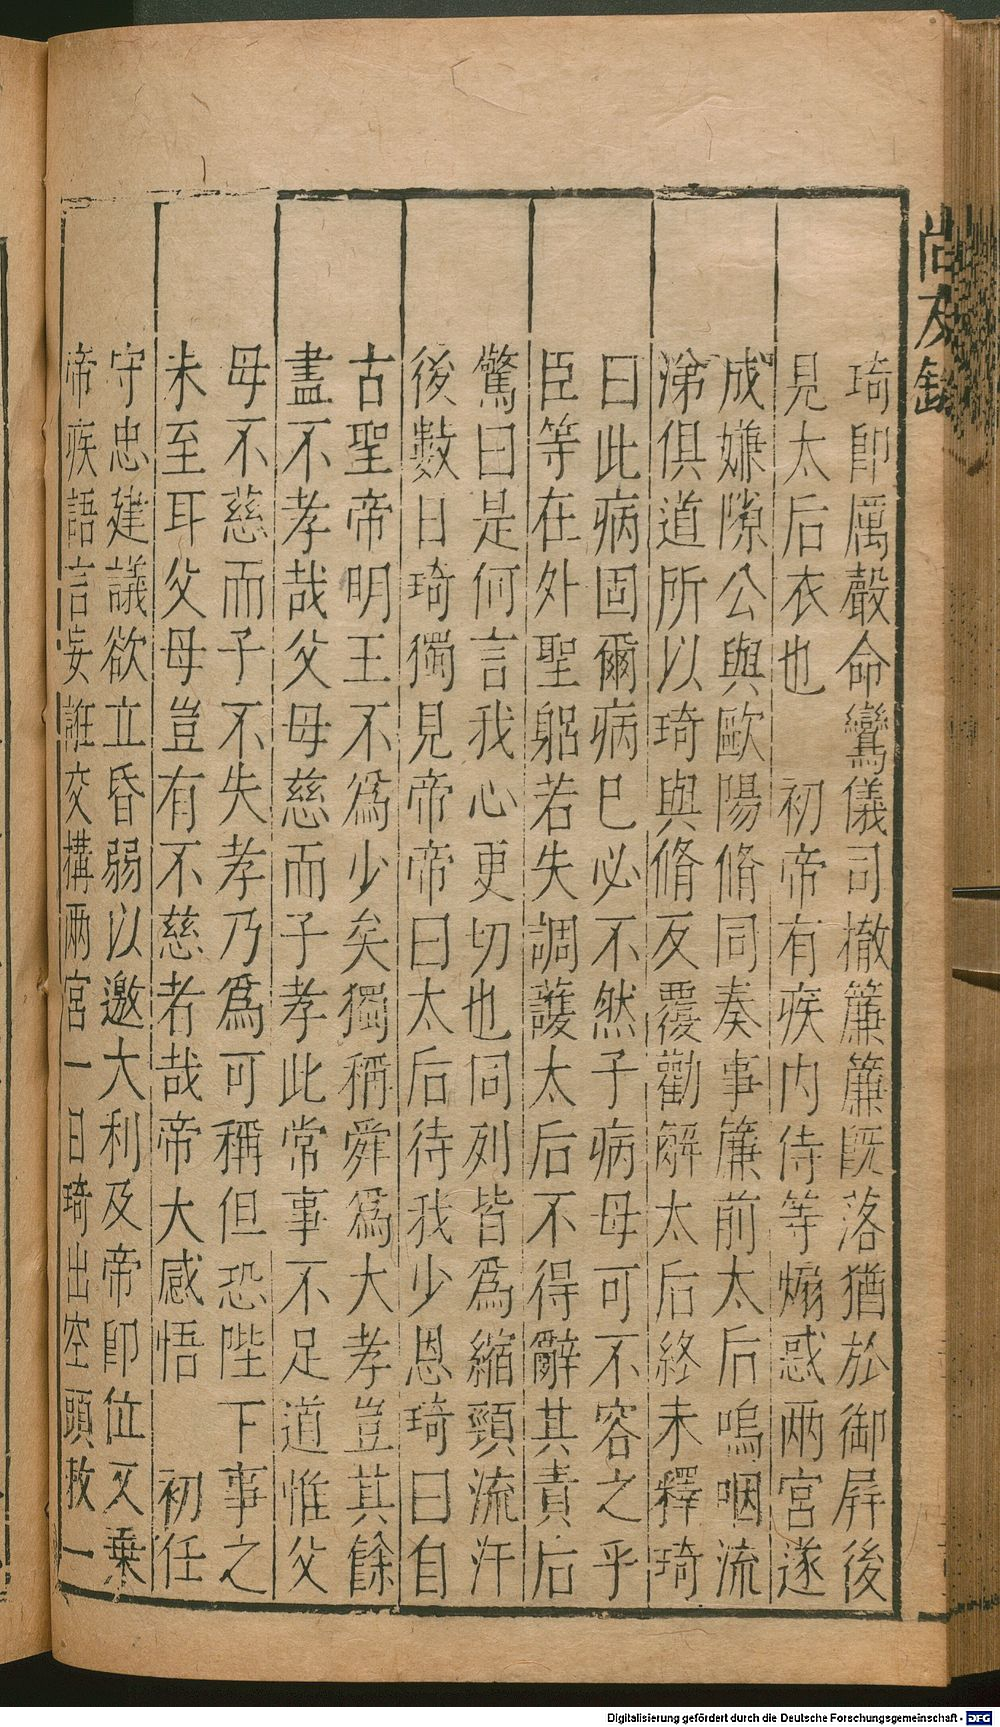 尚友錄
琦即厲聲命鸞儀司撤簾簾既落猶於御屏後
見太后衣也　初帝有疾内侍等煽惑兩宮遂
成嫌隙公與歐陽脩同奏事簾前太后嗚咽流
涕俱道所以琦與脩反覆勸解太后終未釋琦
曰此病固爾病巳必不然子病母可不容之乎
臣等在外聖躬若失調護太后不得辭其責后
驚曰是何言我心更切也同列皆爲縮頸流汗
後數日琦獨見帝帝曰太后待我少恩琦曰自
古聖帝明王不爲少矣獨稱舜爲大孝豈其餘
盡不孝哉父母慈而子孝此常事不足道惟父
母不慈而子不失孝乃爲可稱但恐陛下事之
未至耳父母豈有不慈者哉帝大感悟　初任
守忠建議欲立昏弱以邀大利及帝即位又乗
帝疾語言妄誑交構兩宮一日琦出空頭敕一
Digitalisierung gefördert durch die Deutsche Forschungsgemeinschaft - DFG